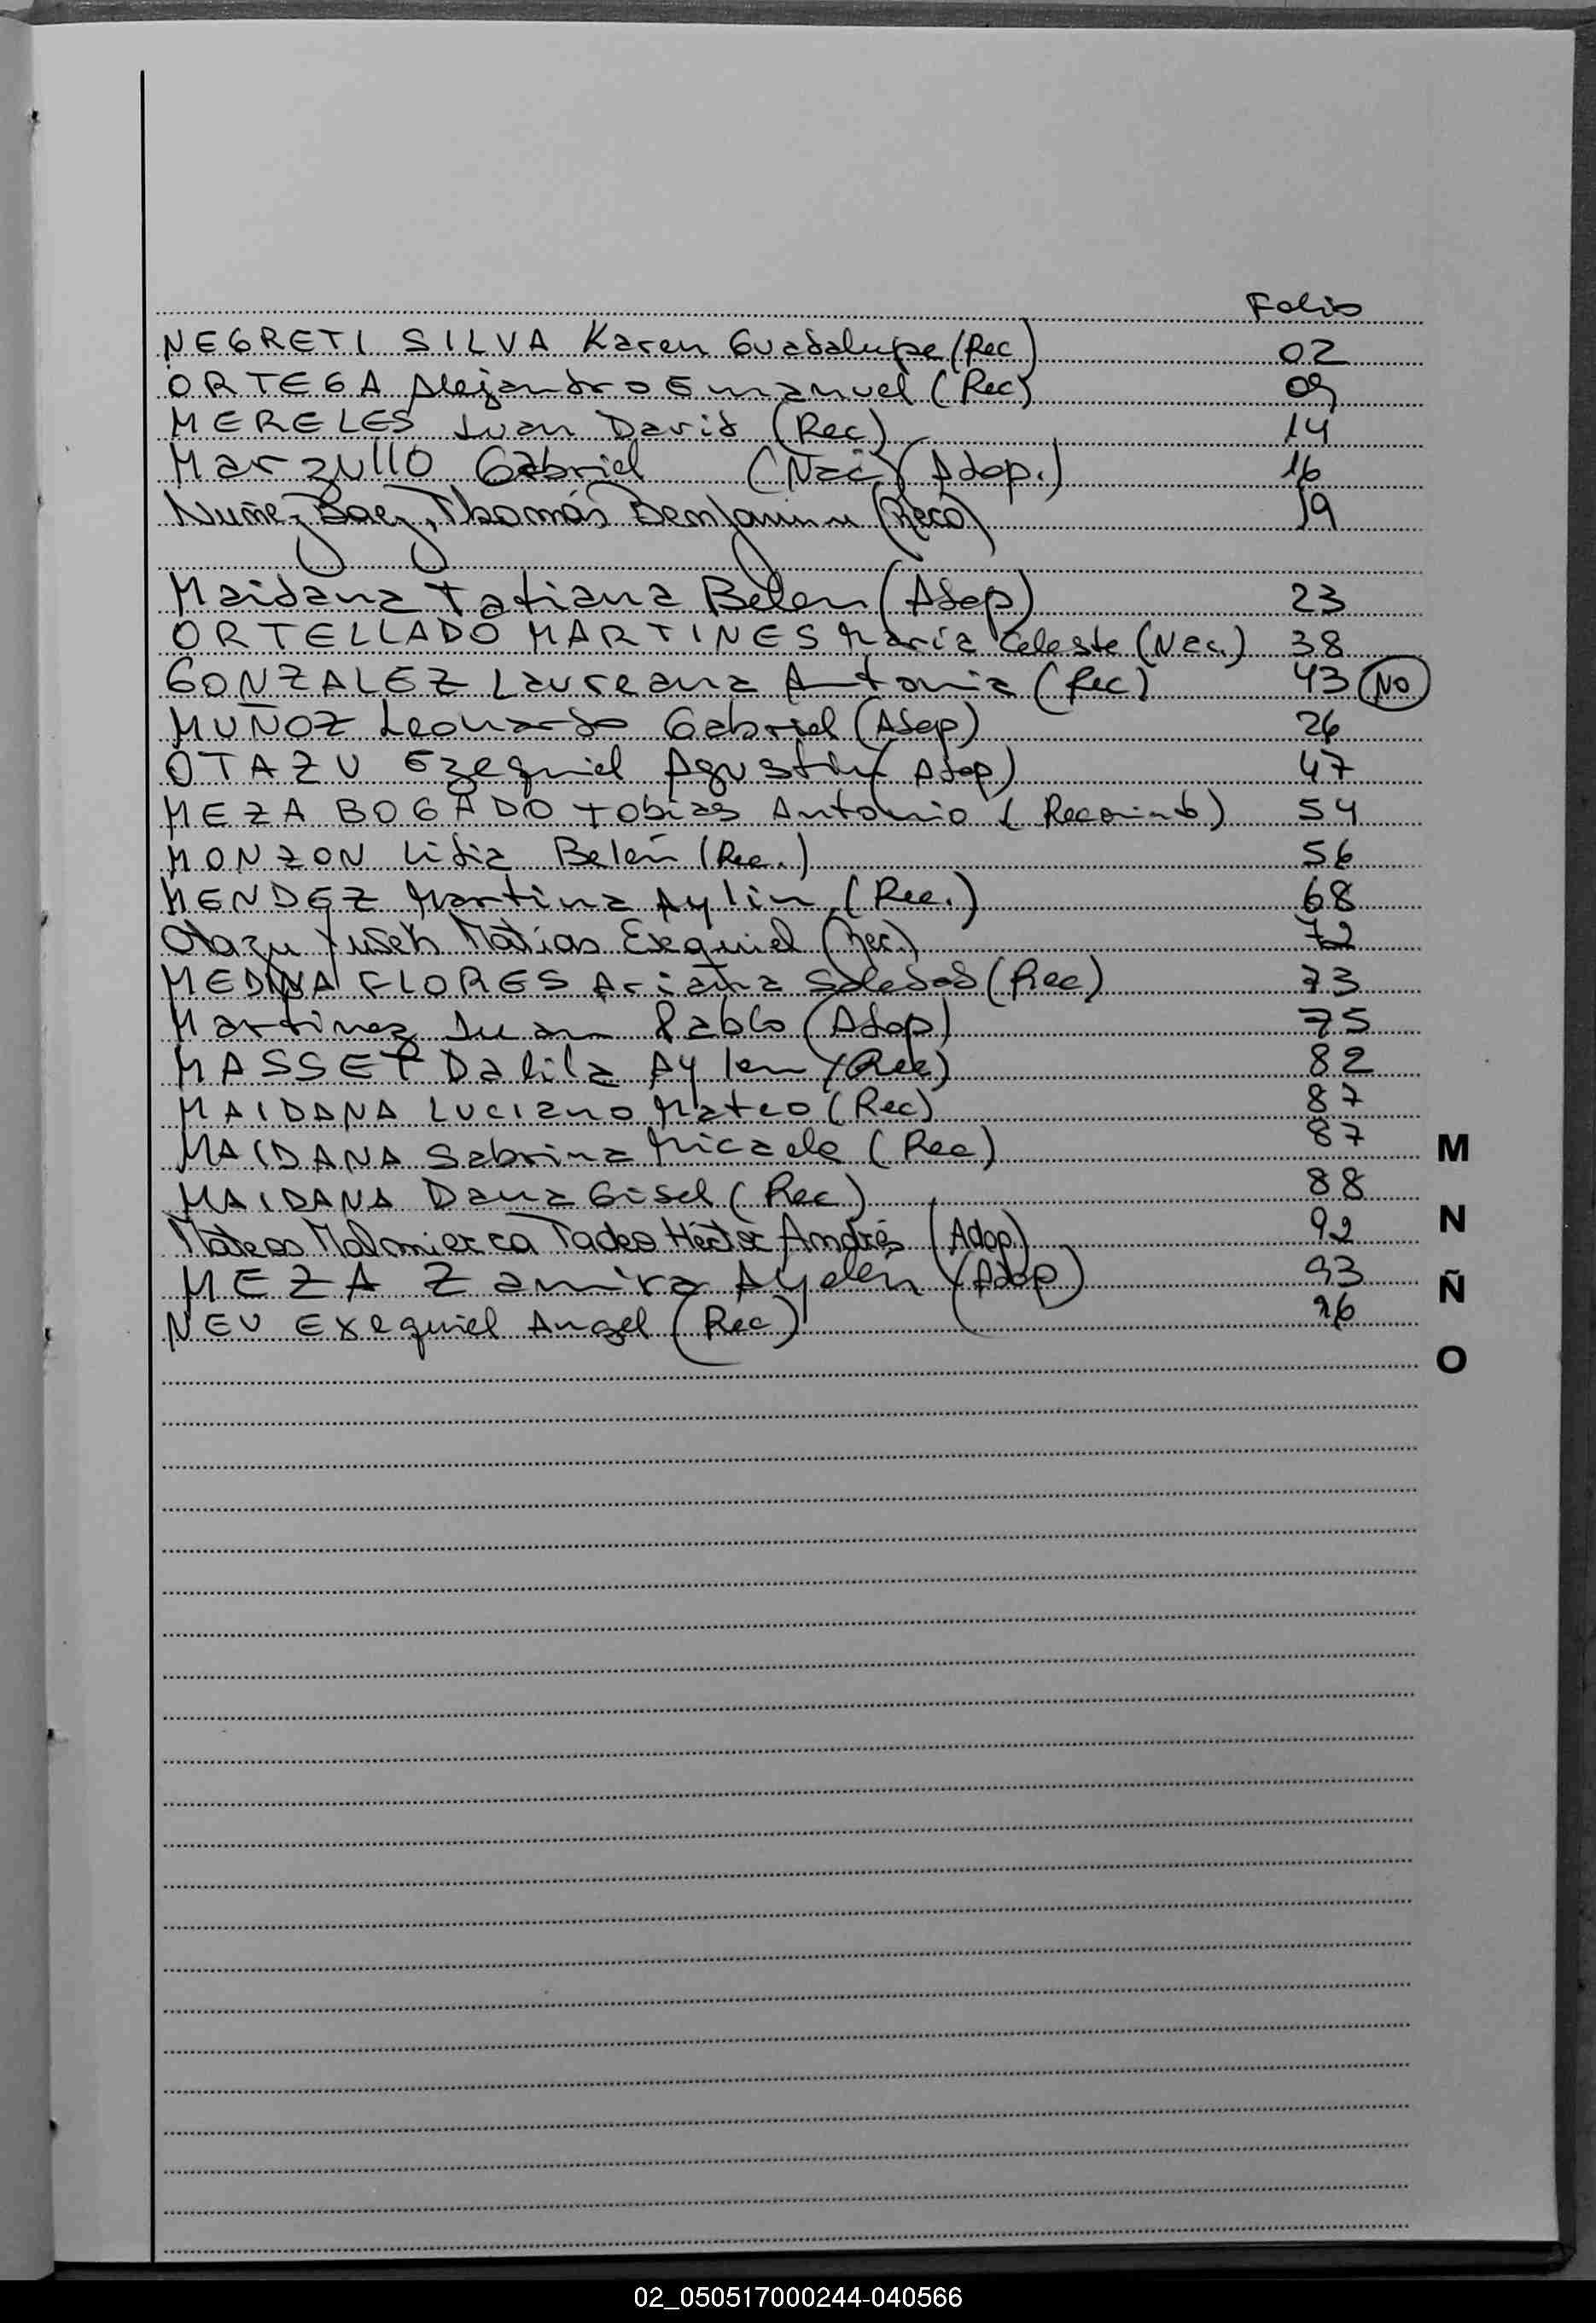 Folio
NEGRETI SILVA Karen Guadalupe (Rec) 02
ORTEGA Alejandro Emanuel (Rec) 09
MERELES Juan David (Rec) 14
Marzullo Gabriel (Nac) (Adop.) 16
Nuñez Baez, Thomás Benjamin (Reco) 19
Maidana Tatiana Belen (Adop) 23
ORTELLADO MARTINES María Celeste (Nac.) 38
GONZALEZ Laureana Antonia (Rec) 43 NO
MUÑOZ Leonardo Gabriel (Adop) 26
OTAZU Ezequiel Agustin (Adop) 47
MEZA BOGADO Tobias Antonio 54
MONZON Lidia Belén (Rec.) 56
MENDEZ Martina Aylin (Rec.) 68
Otazu Matías Exequiel (Rec.) 72
MEDINA FLORES Ariana Soledad (Rec) 73
Martinez Juan Pablo (Adop) 75
MASSET Dalila Aylen (Rec) 82
MAIDANA Luciano Mateo (Rec) 87
MAIDANA Sabrina Micaela (Rec) 87
M
MAIDANA Dana Gisel (Rec) 88
Mateos Malmierca Tadeo Héctor Andrés (Adop) 92
N
MEZA Zamira Ayelén (Adop) 93
Ñ
NEU Exequiel Angel (Rec) 96
O
02_050517000244-040566